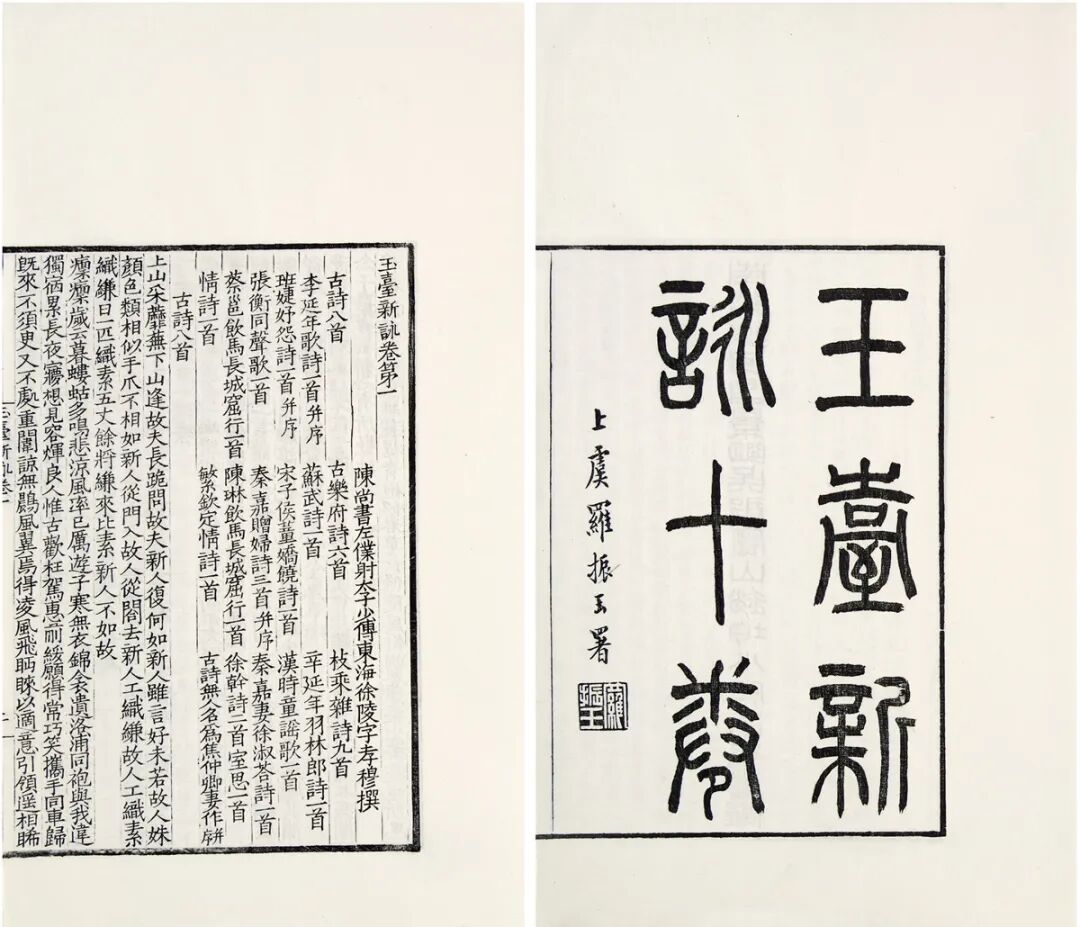 玉臺新
詠十卷
上虞羅振玉署
羅振玉
玉臺新詠卷第一
陳尚書左僕射太子少傅東海徐陵字孝穆撰
古詩八首 古樂府詩六首 枚乘雜詩九首
李延年歌詩一首并序 蘇武詩一首 辛延年羽林郎詩一首
班婕妤怨詩一首并序 宋子侯董嬌饒詩一首 漢時童謠歌一首
張衡同聲歌一首 秦嘉贈婦詩三首并序 秦嘉妻徐淑荅詩一首
蔡邕飲馬長城窟行一首 陳琳飲馬長城窟行一首 徐幹詩二首室思一首
情詩一首 繁欽定情詩一首 古詩無人名爲焦仲卿妻作并序
古詩八首
上山采蘼蕪下山逢故夫長跪問故夫新人復何如新人雖言好未若故人姝
顏色類相似手爪不相如新人從門入故人從閤去新人工織縑故人工織素
織縑日一匹織素五丈餘將縑來比素新人不如故
凜凜歲云暮螻蛄多鳴悲涼風率已厲遊子寒無衣錦衾遺洛浦同袍與我違
獨宿累長夜夢想見容輝良人惟古歡枉駕惠前綏願得常巧笑攜手同車歸
旣來不須臾又不處重闈諒無鷐風翼焉得凌風飛眄睞以適意引領遥相睎